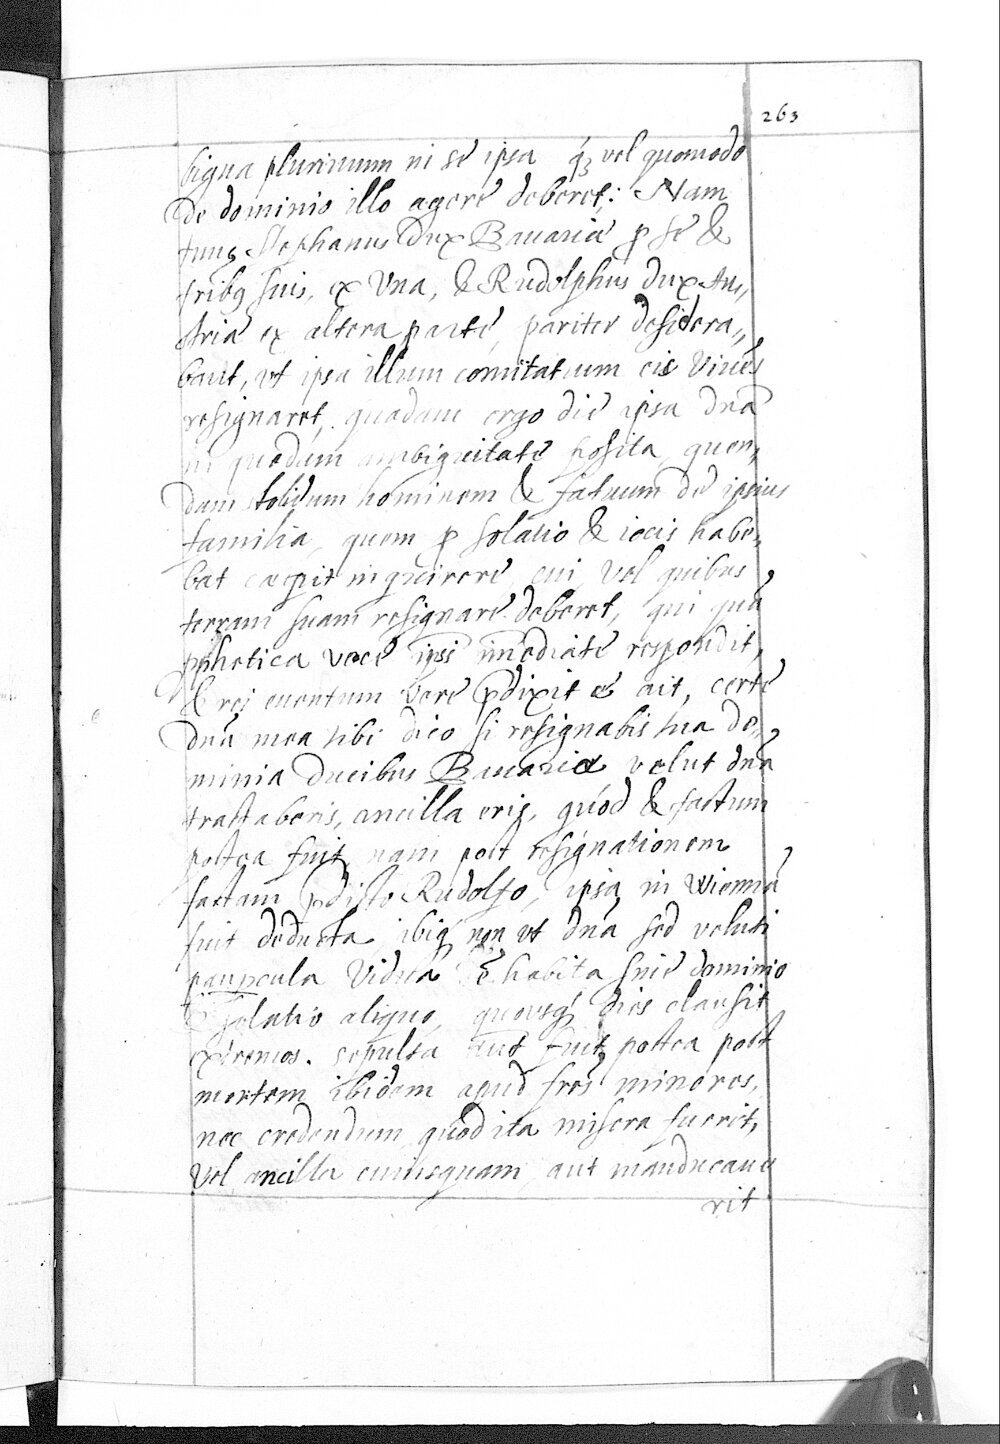 263
bigua plurimum in se ipsa qꝫ vel quomodo
de dominio illo agere deberet: Nam
tunc Stephanus Dux Bavariæ ꝓ se &
fribꝫ suis, ex Una, & Rudolphus Dux Au,,
striæ ex altera parte, pariter desidera,,
bant, vt ipsa illum comitatum eis viuēs
resignaret, quadam ergo die ipsa dnā
in quadam ambiguitate posita, quen,,
dam stolidum hominem & fatuum de ipsius
familia, quem ꝓ solatio & iocis habe,,
bat cæpit inquirere, cui, vel quibus
terram suam resignare deberet, qui quā
ꝓphetica voce ipsi immediate respondit,
& rei euentum vere p̄dixit & ait, certe
dnā mea tibi dico si resignabis tua do,,
minia Ducibus Bauariæ velut dnā
tractaberis, ancilla eris, quod & factum
postea fuit, nam post resignationem
factam p̄dicto Rudolfo, ipsa in Wiennā
fuit deducta, ibiq non vt dnā sed veluti
paupcula vidua ē habita sine dominio
& solatio aliquo, quousq dies clausit
extremos. sepulta aut fuit postea post
mortem ibidem apud frēs minores,
nec credendum quod ita misera fuerit,
vel ancilla cuiusquam, aut manducaue
rit